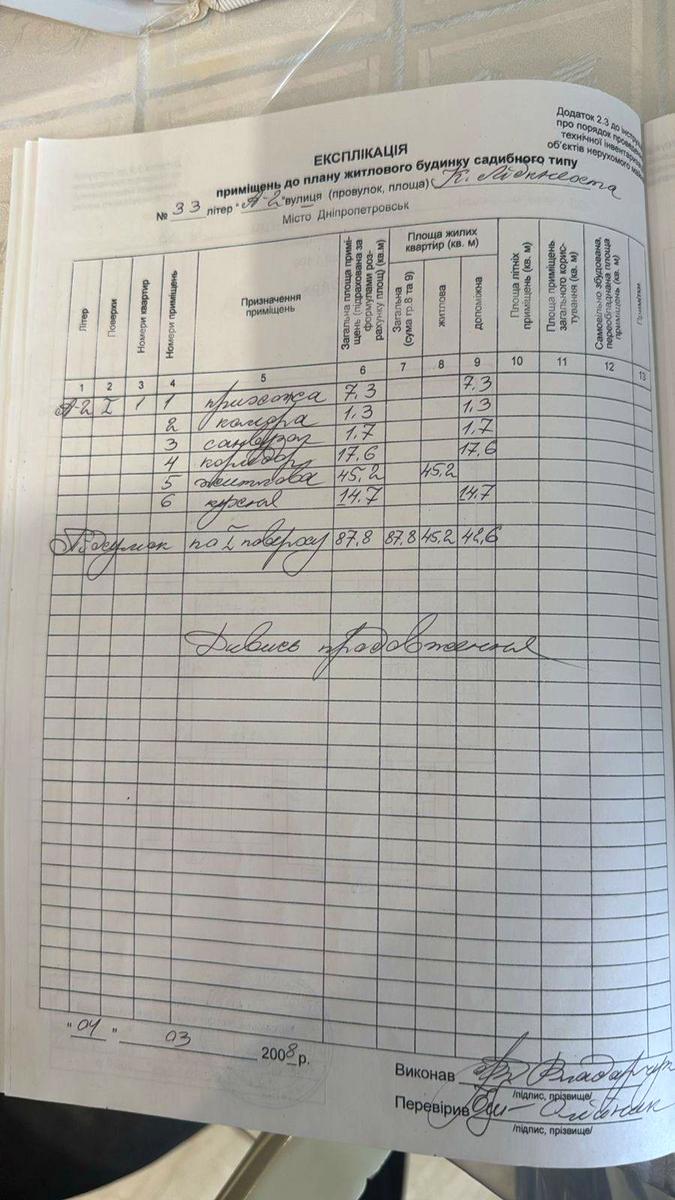 Додаток 2.3 до інстр
про порядок провед
технічної інвентариз
об'єктів нерухомого
ЕКСПЛІКАЦІЯ
приміщень до плану житлового будинку садибного типу
№ 33 літер "А-2" вулиця (провулок, площа) К. Лібкнехта
Місто Дніпропетровськ
Літер Поверхи Номери квартир Номери приміщень Призначення приміщень Загальна площа приміщень (підрахована за формулами розрахунку площ) (кв.м) Площа жилих квартир (кв. м) Загальна (сума гр.8 та 9) житлова допоміжна Площа літніх приміщень (кв. м) Площа приміщень загального користування (кв. м) Самовільно збудована, переобладнана площа приміщень (кв. м) Примітки
1 2 3 4 5 6 7 8 9 10 11 12 13
А-2 I 1 1 прихожа 7,3 7,3
2 комора 1,3 1,3
3 санвузол 1,7 1,7
4 коридор 17,6 17,6
5 житлова 45,2 45,2
6 кухня 14,7 14,7
Підсумок по I поверху 87,8 87,8 45,2 42,6
Дивись продовження
"04" 03 2008 р.
Виконав
/підпис, прізвище/
Перевірив Олійник
/підпис, прізвище/